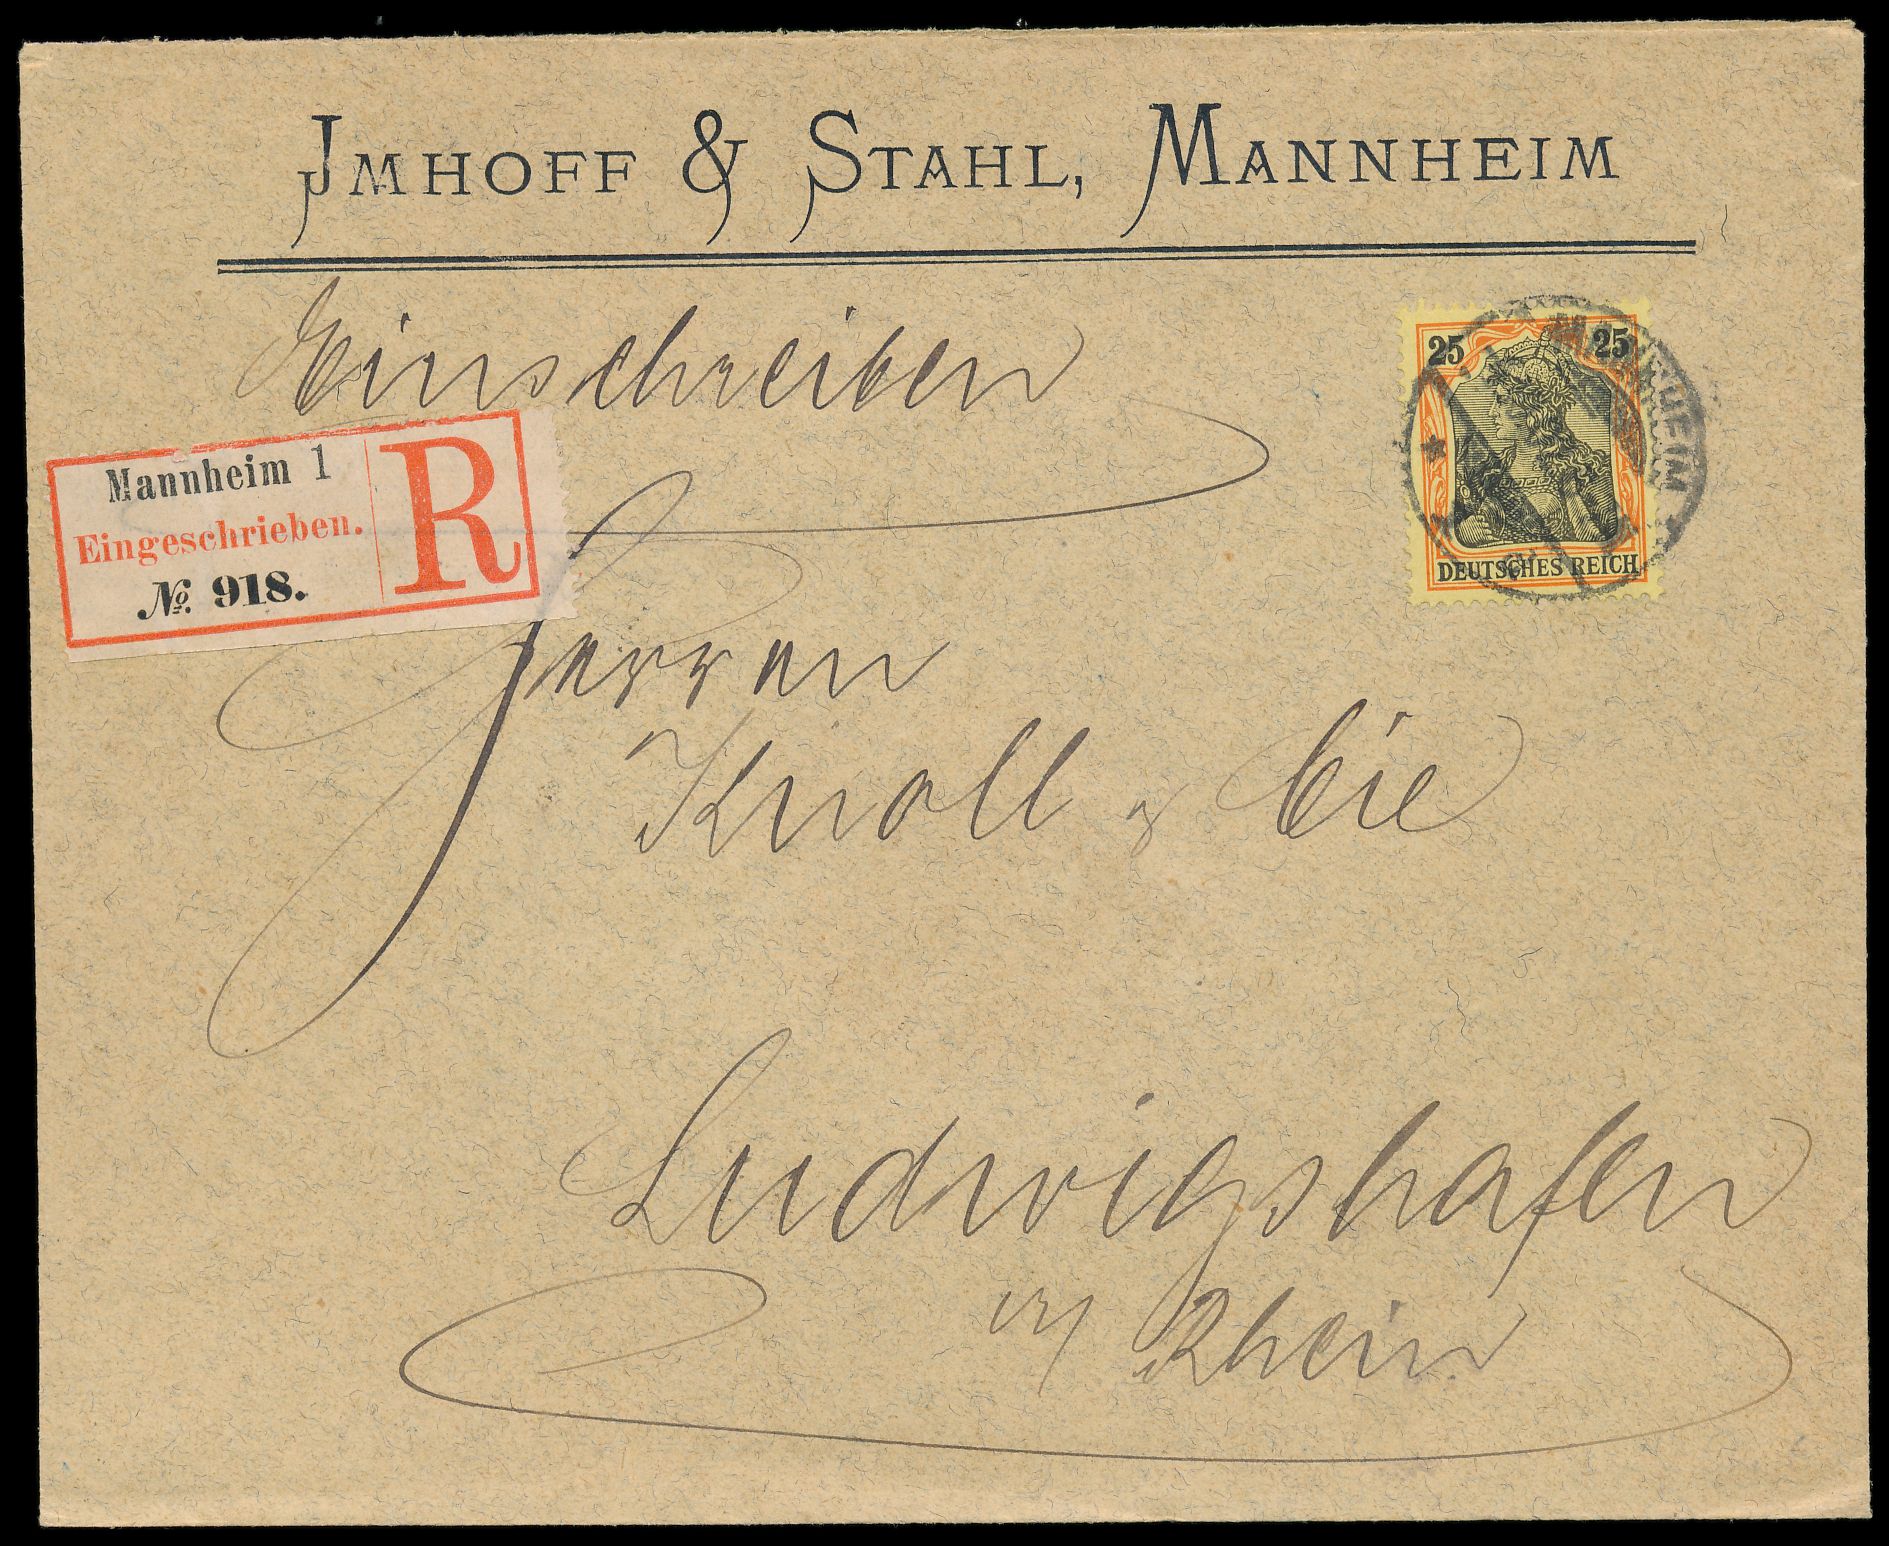 JMHOFF & STAHL, MANNHEIM
Einschreiben
25 25
MANNHEIM
DEUTSCHES REICH
Mannheim 1
Eingeschrieben.
R
№ 918.
Herren
Knoll & Cie
Ludwigshafen
a/ Rhein